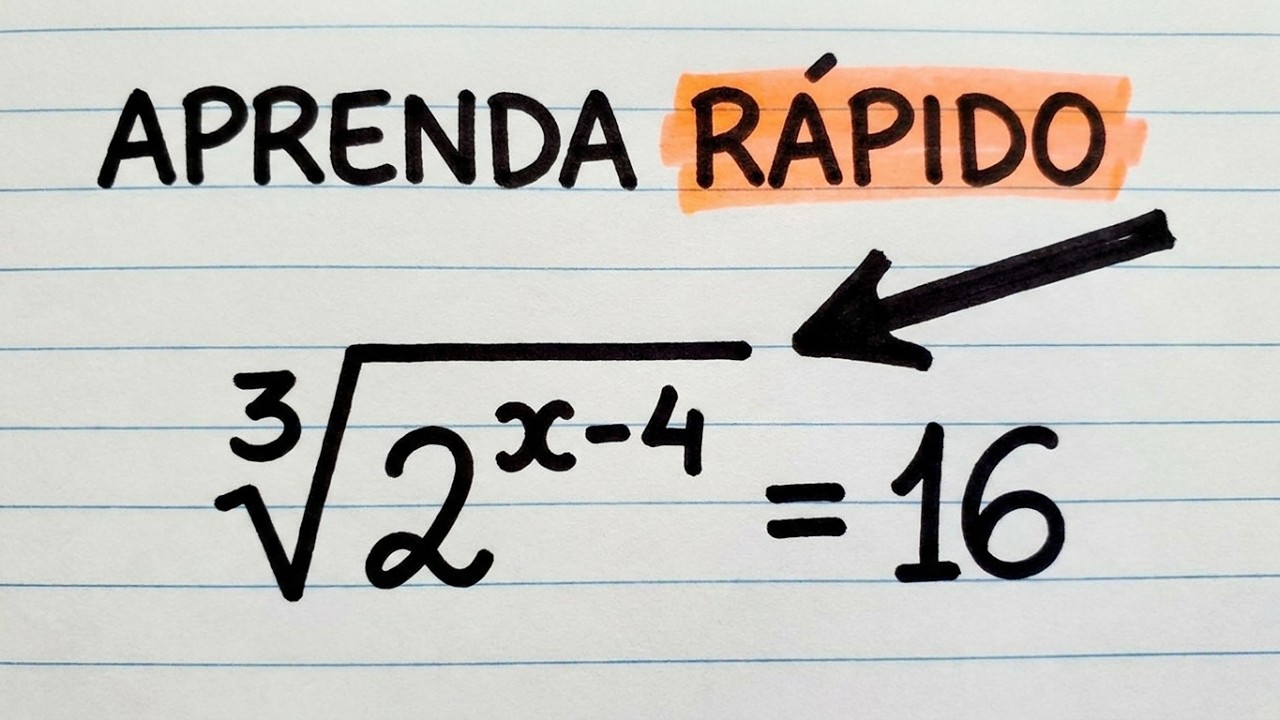 APRENDA RÁPIDO
∛(2^(x-4)) = 16